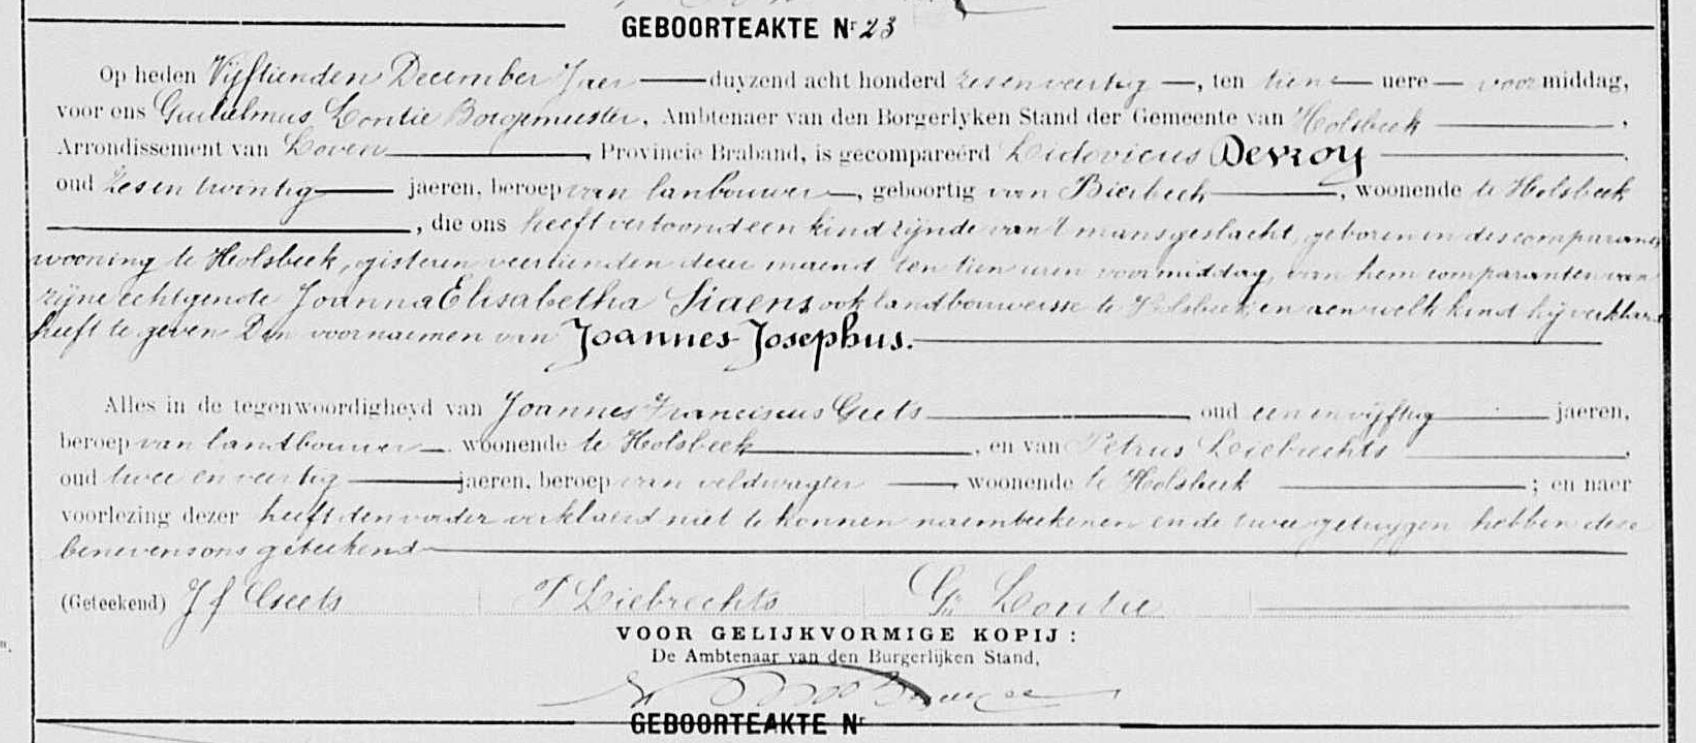 GEBOORTEAKTE Nr 23
Op heden Vijftienden December Jaer duyzend acht honderd zesenveertig, ten tiene uere voor middag,
voor ons Guilielmus Lontie Borgemeester, Ambtenaer van den Borgerlyken Stand der Gemeente van Holsbeek,
Arrondissement van Loven, Provincie Braband, is gecompareérd Ludovicus Devroy
oud zesentwintig jaeren, beroep van lanbouwer, geboortig van Bierbeek, woonende te Holsbeek
, die ons heeft vertoond een kind zijnde van 't mansgeslacht, geboren in des comparants
wooning te Holsbeek, gisteren veertienden deser maend ten tien uren voormiddag, van hem comparanten van
zijne echtgenote Joanna Elisabetha Siaens ook landbouwersse te Holsbeek, en aen welk kind hij verklaerd
heeft te geven Den voornaemen van Joannes Josephus.
Alles in de tegenwoordigheyd van Joannes Franciscus Geets oud een en vijftig jaeren,
beroep van landbouwer woonende te Holsbeek, en van Petrus Liebrechts,
oud twee en veertig jaeren, beroep van veldwagter, woonende te Holsbeek ; en naer
voorlezing dezer heeft den vader verklaerd niet te konnen naemteekenen en de twee getuygen hebben dese
benevens ons geteekend
(Geteekend) J f Geets P Liebrechts Gu Lontie
VOOR GELIJKVORMIGE KOPIJ :
De Ambtenaar van den Burgerlijken Stand,
GEBOORTEAKTE Nr